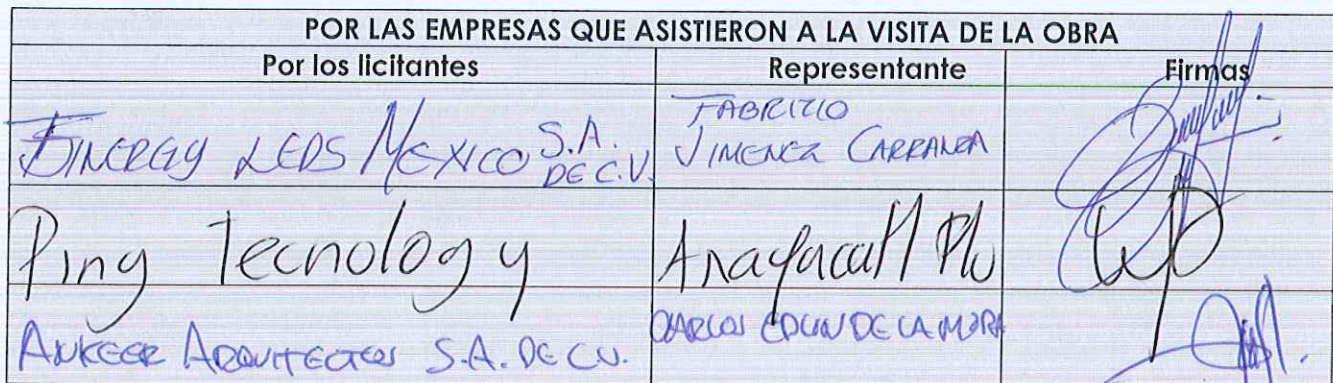 POR LAS EMPRESAS QUE ASISTIERON A LA VISITA DE LA OBRA
Por los licitantes Representante Firmas
SINERGY LEDS MEXICO S.A. DE C.V. FABRIZIO JIMENEZ CARRANZA
Ping Tecnology
ANKEER ARQUITECTOS S.A. DE C.V. CARLOS EDWIN DE LA MORA